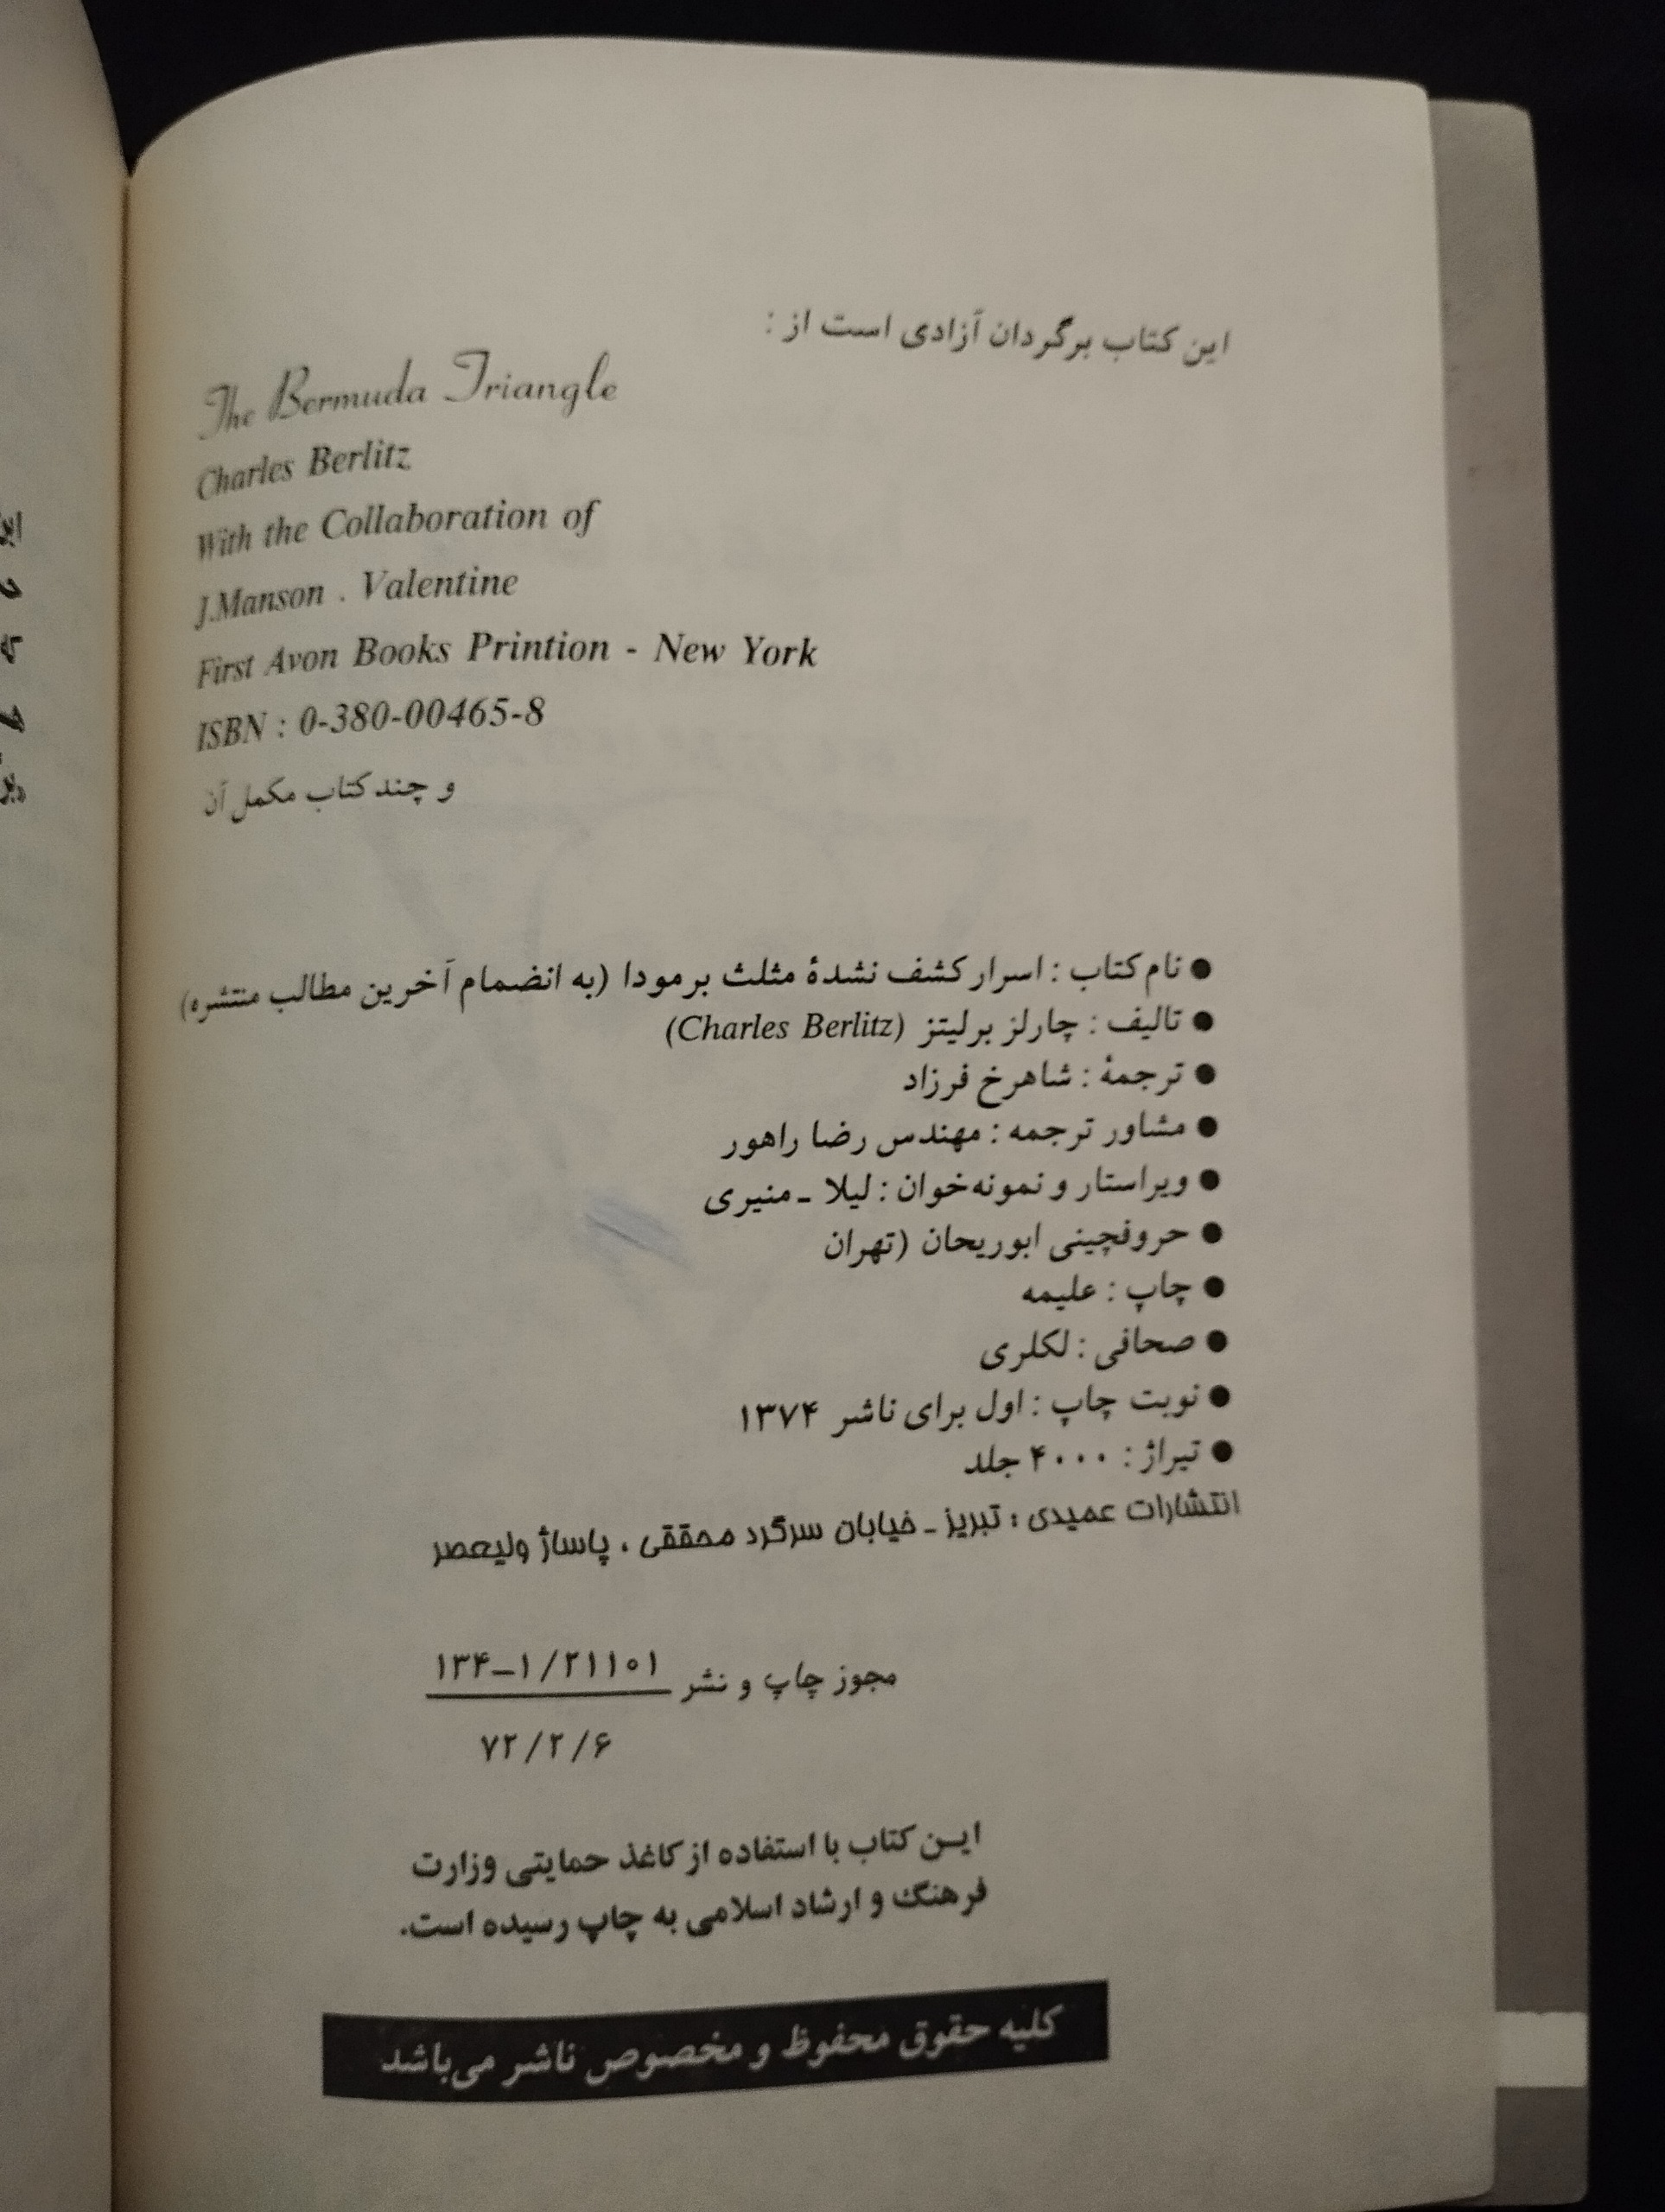 این کتاب برگردان آزادی است از :
The Bermuda Triangle
Charles Berlitz
With the Collaboration of
J.Manson . Valentine
First Avon Books Printion - New York
ISBN : 0-380-00465-8
و چند کتاب مکمل آن
● نام کتاب : اسرار کشف نشدهٔ مثلث برمودا (به انضمام آخرین مطالب منتشره)
● تالیف : چارلز برلیتز (Charles Berlitz)
● ترجمهٔ : شاهرخ فرزاد
● مشاور ترجمه : مهندس رضا راهور
● ویراستار و نمونه‌خوان : لیلا ـ منیری
● حروفچینی ابوریحان (تهران
● چاپ : علیمه
● صحافی : لکلری
● نوبت چاپ : اول برای ناشر ۱۳۷۴
● تیراژ : ۴۰۰۰ جلد
انتشارات عمیدی : تبریز ـ خیابان سرگرد محققی ، پاساژ ولیعصر
مجوز چاپ و نشر ۱۳۴–۱/۲۱۱۰۱
۷۲/۲/۶
ایـن کتاب با استفاده از کاغذ حمایتی وزارت
فرهنگ و ارشاد اسلامی به چاپ رسیده است.
کلیه حقوق محفوظ و مخصوص ناشر می‌باشد